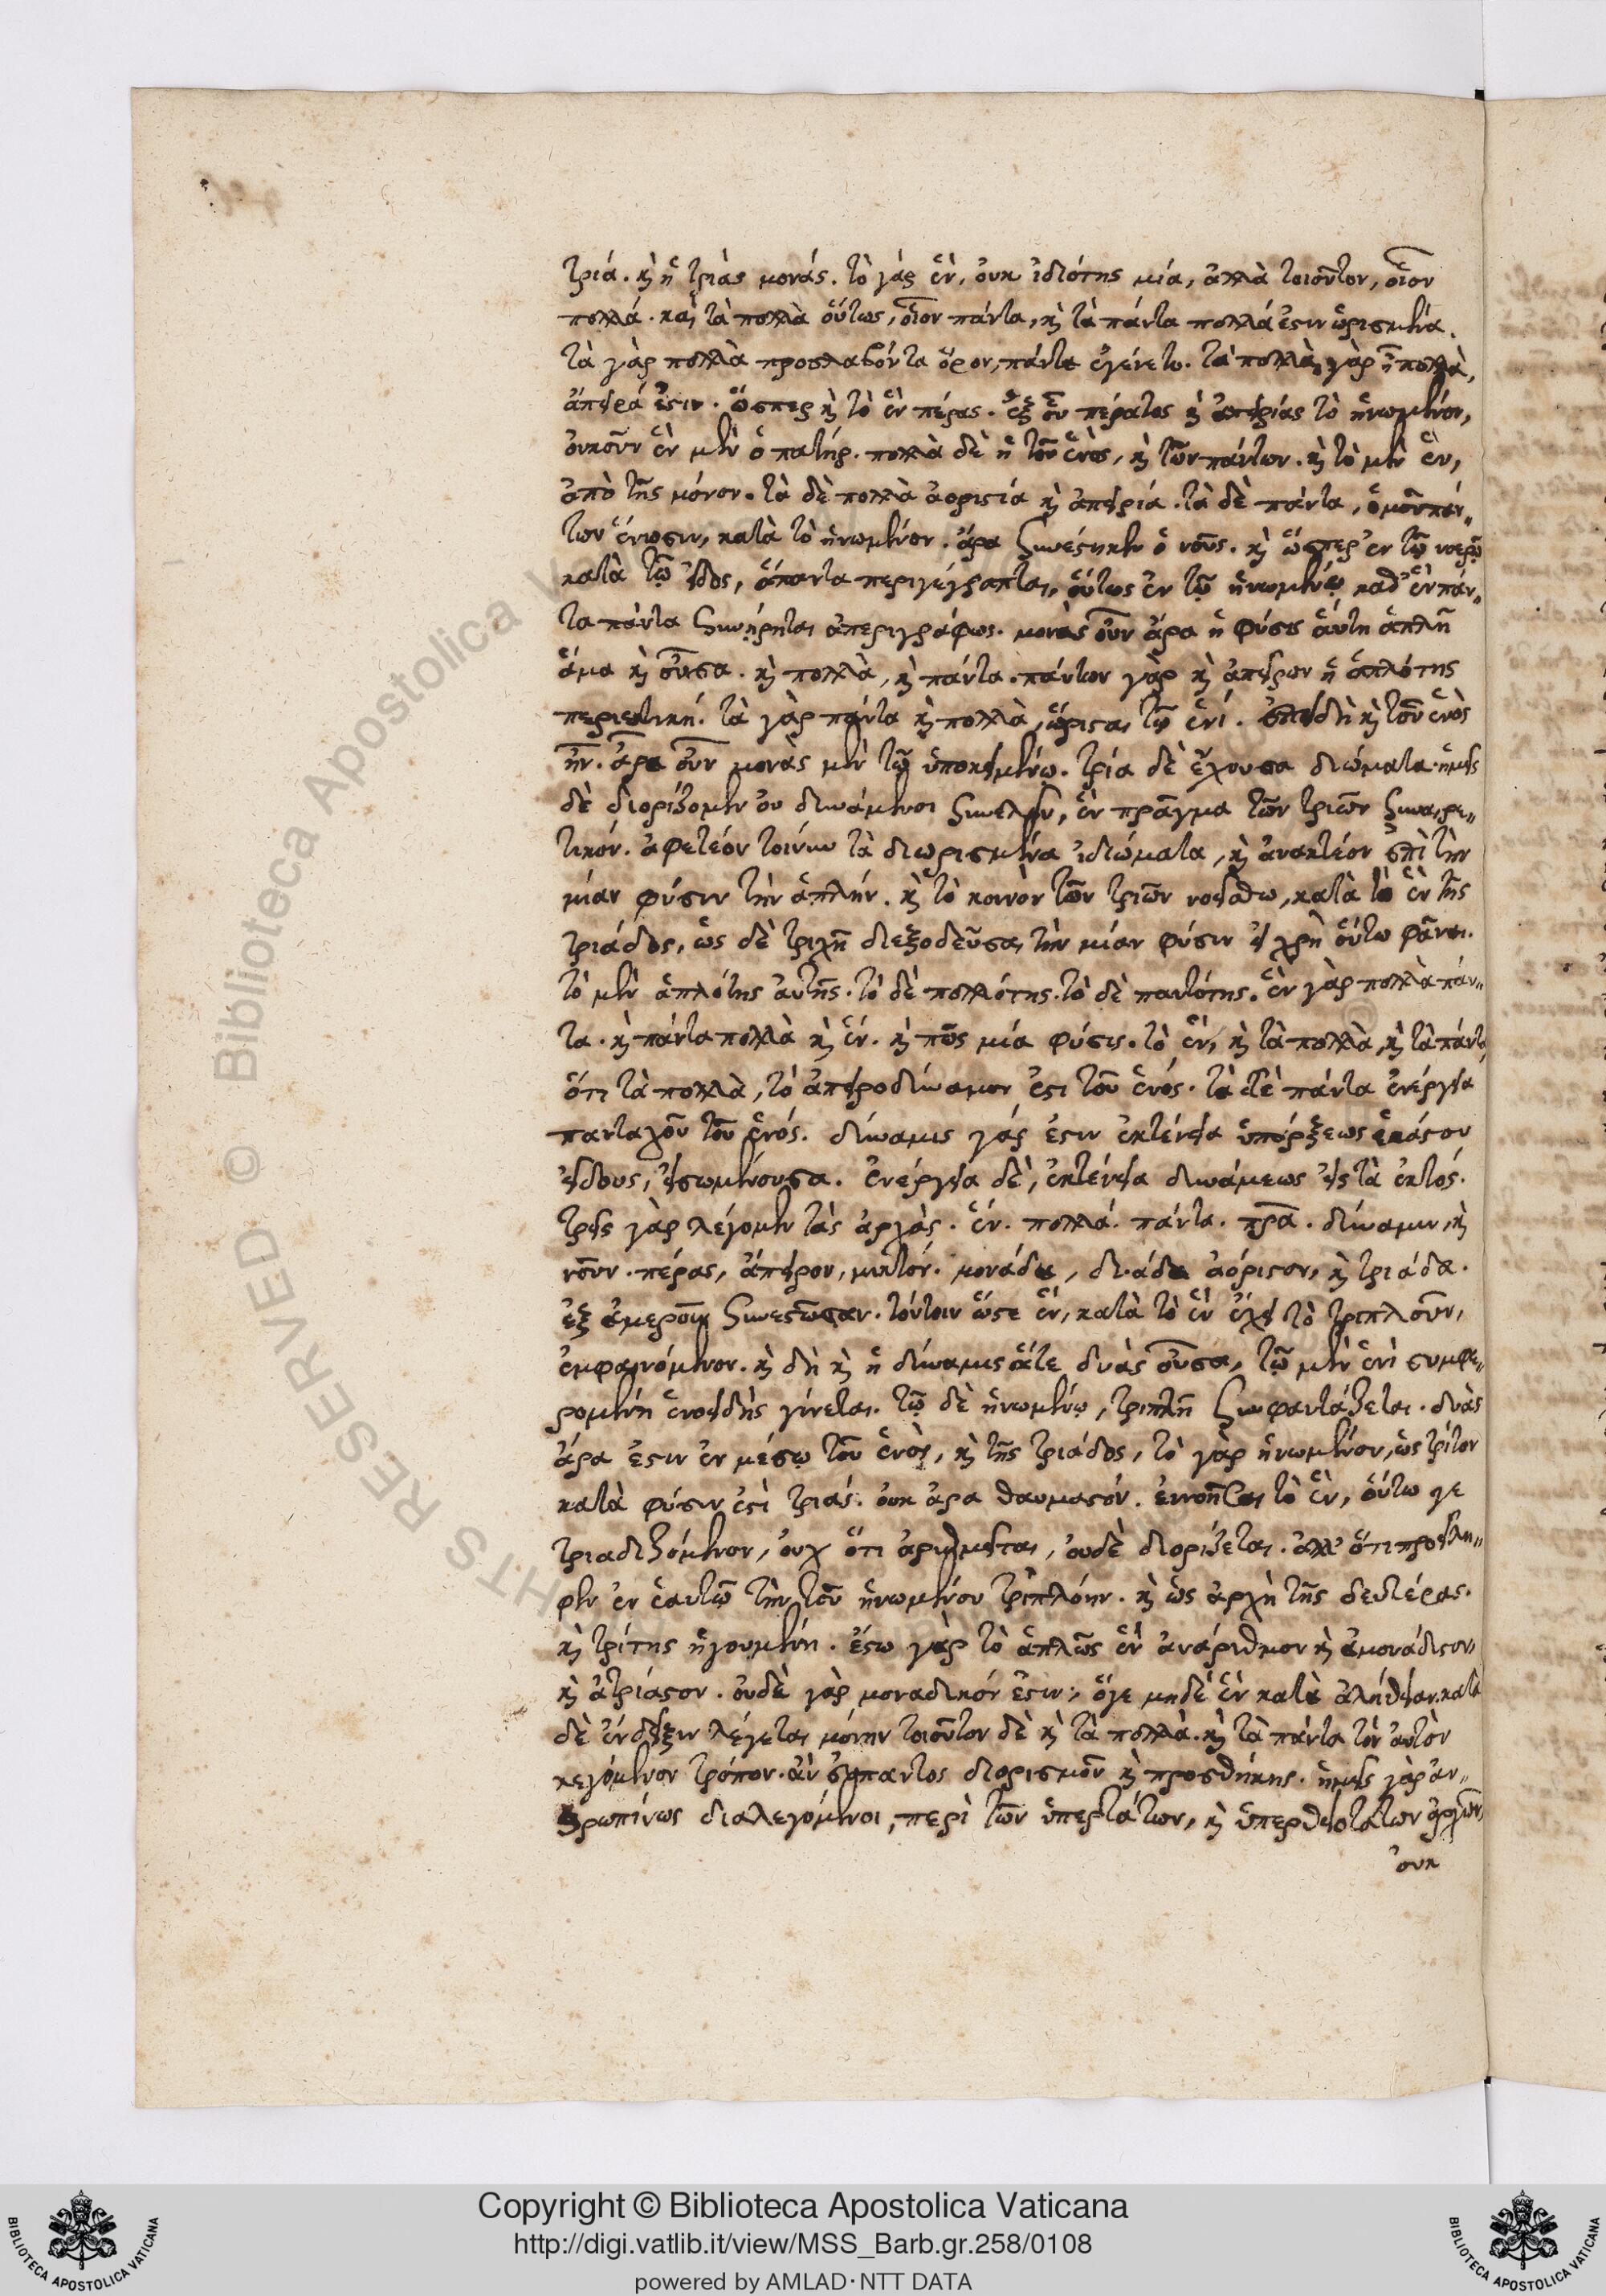 τριά. καὶ ἡ τριὰς μονάς. τὸ γάρ ἓν, οὐκ ἰδιότης μία, ἀλλὰ τοιοῦτον, οἷον
πολλά. καὶ τὰ πολλὰ οὕτως, οἷον πάντα, καὶ τὰ πάντα πολλά ἐστιν ὡρισμένα.
τὰ γὰρ πολλὰ προσλαβόντα ὅρον, πάντα ἐγένετο. τὰ πολλὰ γὰρ ᾗ πολλὰ,
ἄπειρά ἐστιν. ὥσπερ καὶ τὸ ἓν πέρας. ἐξ οὗ πέρατος καὶ ἀπειρίας τὸ ἡνωμένον,
οὐκοῦν ἓν μὲν ὁ πατήρ. πολλὰ δὲ ἡ τοῦ ἑνὸς, καὶ τῶν πάντων. καὶ τὸ μὲν ἓν,
ἀπὸ τῆς μόνον. τὰ δὲ πολλὰ ἀοριστία καὶ ἀπειρία. τὰ δὲ πάντα, ὁμοῦ πάν-
των ἕνωσιν, κατὰ τὸ ἡνωμένον. ἄρα συνέστηκεν ὁ νοῦς. καὶ ὥσπερ ἐν τῷ νοερῷ
κατὰ τῷ εἶδος, ἅπαντα περιγέγραπται, οὕτως ἐν τῷ ἡνωμένῳ καθ' ἓν πάν-
τα πάντα συνῄρηται ἀπεριγράφως. μονὰς οὖν ἄρα ἡ φύσις αὕτη ἁπλῆ
ἅμα καὶ οὖσα. καὶ πολλὰ, καὶ πάντα. πάντων γὰρ καὶ ἀπείρων ἡ ἁπλότης
περιεκτική. τὰ γὰρ πάντα καὶ πολλὰ, ὥρισται τῷ ἑνί. ἐπειδὴ καὶ τοῦ ἑνὸς
ἦν. ἆρα οὖν μονὰς μὲν τῷ ὑποκειμένῳ. τρία δὲ ἔχουσα διώματα. ἡμεῖς
δὲ διορίζομεν οὐ δυνάμενοι συνελεῖν, ἓν πρᾶγμα τῶν τριῶν συναιρε-
τικόν. ἀφετέον τοίνυν τὰ διωρισμένα ἰδιώματα, καὶ ἀνακτέον ἐπὶ τὴν
μίαν φύσιν τὴν ἁπλήν. καὶ τὸ κοινὸν τῶν τριῶν νοείσθω, κατὰ τὸ ἓν τῆς
τριάδος, ὡς δὲ τριχῆ διεξοδεῦσαι τὴν μίαν φύσιν εἰ χρὴ οὕτω φᾶναι.
τὸ μὲν ἁπλότης αὐτῆς. τὸ δὲ πολλότης. τὸ δὲ παντότης. ἓν γὰρ πολλὰ πάν-
τα. καὶ πάντα πολλὰ καὶ ἕν. καὶ πῶς μία φύσις. τὸ ἓν, καὶ τὰ πολλὰ, καὶ τὰ πάντα,
ὅτι τὰ πολλὰ, τὸ ἀπειροδύναμον ἐστι τοῦ ἑνός. τὰ δὲ πάντα ἐνέργεια
πανταχοῦ τοῦ ἑνός. δύναμις γάρ ἐστιν ἐκτένεια ὑπάρξεως ἑκάστου
εἴδους, εἴσω μένουσα. ἐνέργεια δὲ, ἐκτένεια δυνάμεως εἰς τὰ ἐκτός.
τρεῖς γὰρ λέγομεν τὰς ἀρχὰς. ἕν. πολλά. πάντα. πρα. δύναμιν, καὶ
νοῦν. πέρας, ἄπειρον, μικτόν. μονάδα, δυάδα ἀόριστον, καὶ τριάδα.
ἐξ ἀμεροῖν συνεστῶσαν. τούτοιν ὥστε ἓν, κατὰ τὸ ἓν ἔχει τὸ τριπλοῦν,
ἐμφαινόμενον. καὶ δὴ καὶ ἡ δύναμις ἅτε δυὰς οὖσα, τῷ μὲν ἑνὶ συμφε-
ρομένη ἑνοειδὴς γίνεται. τῷ δὲ ἡνωμένῳ, τριπλῆ συμφαντάζεται. δυὰς
ἄρα ἐστιν ἐν μέσῳ τοῦ ἑνὸς, καὶ τῆς τριάδος, τὸ γὰρ ἡνωμένον, ὡς τρίτον
κατὰ φύσιν ἐστὶ τριάς. οὐκ ἄρα θαυμαστόν. ἐννοῆσαι τὸ ἓν, οὕτω γε
τριαδιζόμενον, οὐχ ὅτι ἀριθμεῖται, οὐδὲ διορίζεται. ἀλλ' ὅτι προείλη-
φεν ἐν ἑαυτῷ τὴν τοῦ ἡνωμένου τριπλόην. καὶ ὡς ἀρχὴ τῆς δευτέρας.
καὶ τρίτης ἡγουμένη. ἔστω γὰρ τὸ ἁπλῶς ἓν ἀνάριθμον καὶ ἀμονάδιστον,
καὶ ἀτρίαστον. οὐδὲ γὰρ μοναδικόν ἐστιν, ὅγε μηδὲ ἓν κατὰ ἀλήθειαν, κατὰ
δὲ ἔνδειξιν λέγεται μόνην τοιοῦτον δὲ καὶ τὰ πολλὰ. καὶ τὰ πάντα τὸν αὐτὸν
λεγόμενον τρόπον. ἄνευ παντος διορισμοῦ καὶ προσθήκης. ἡμεῖς γὰρ ἀν-
θρωπίνως διαλεγόμενοι, περὶ τῶν ὑπερτάτων, καὶ ὑπερθειοτάτων ἀρχῶν,
οὐκ
Copyright © Biblioteca Apostolica Vaticana
http://digi.vatlib.it/view/MSS_Barb.gr.258/0108
powered by AMLAD·NTT DATA